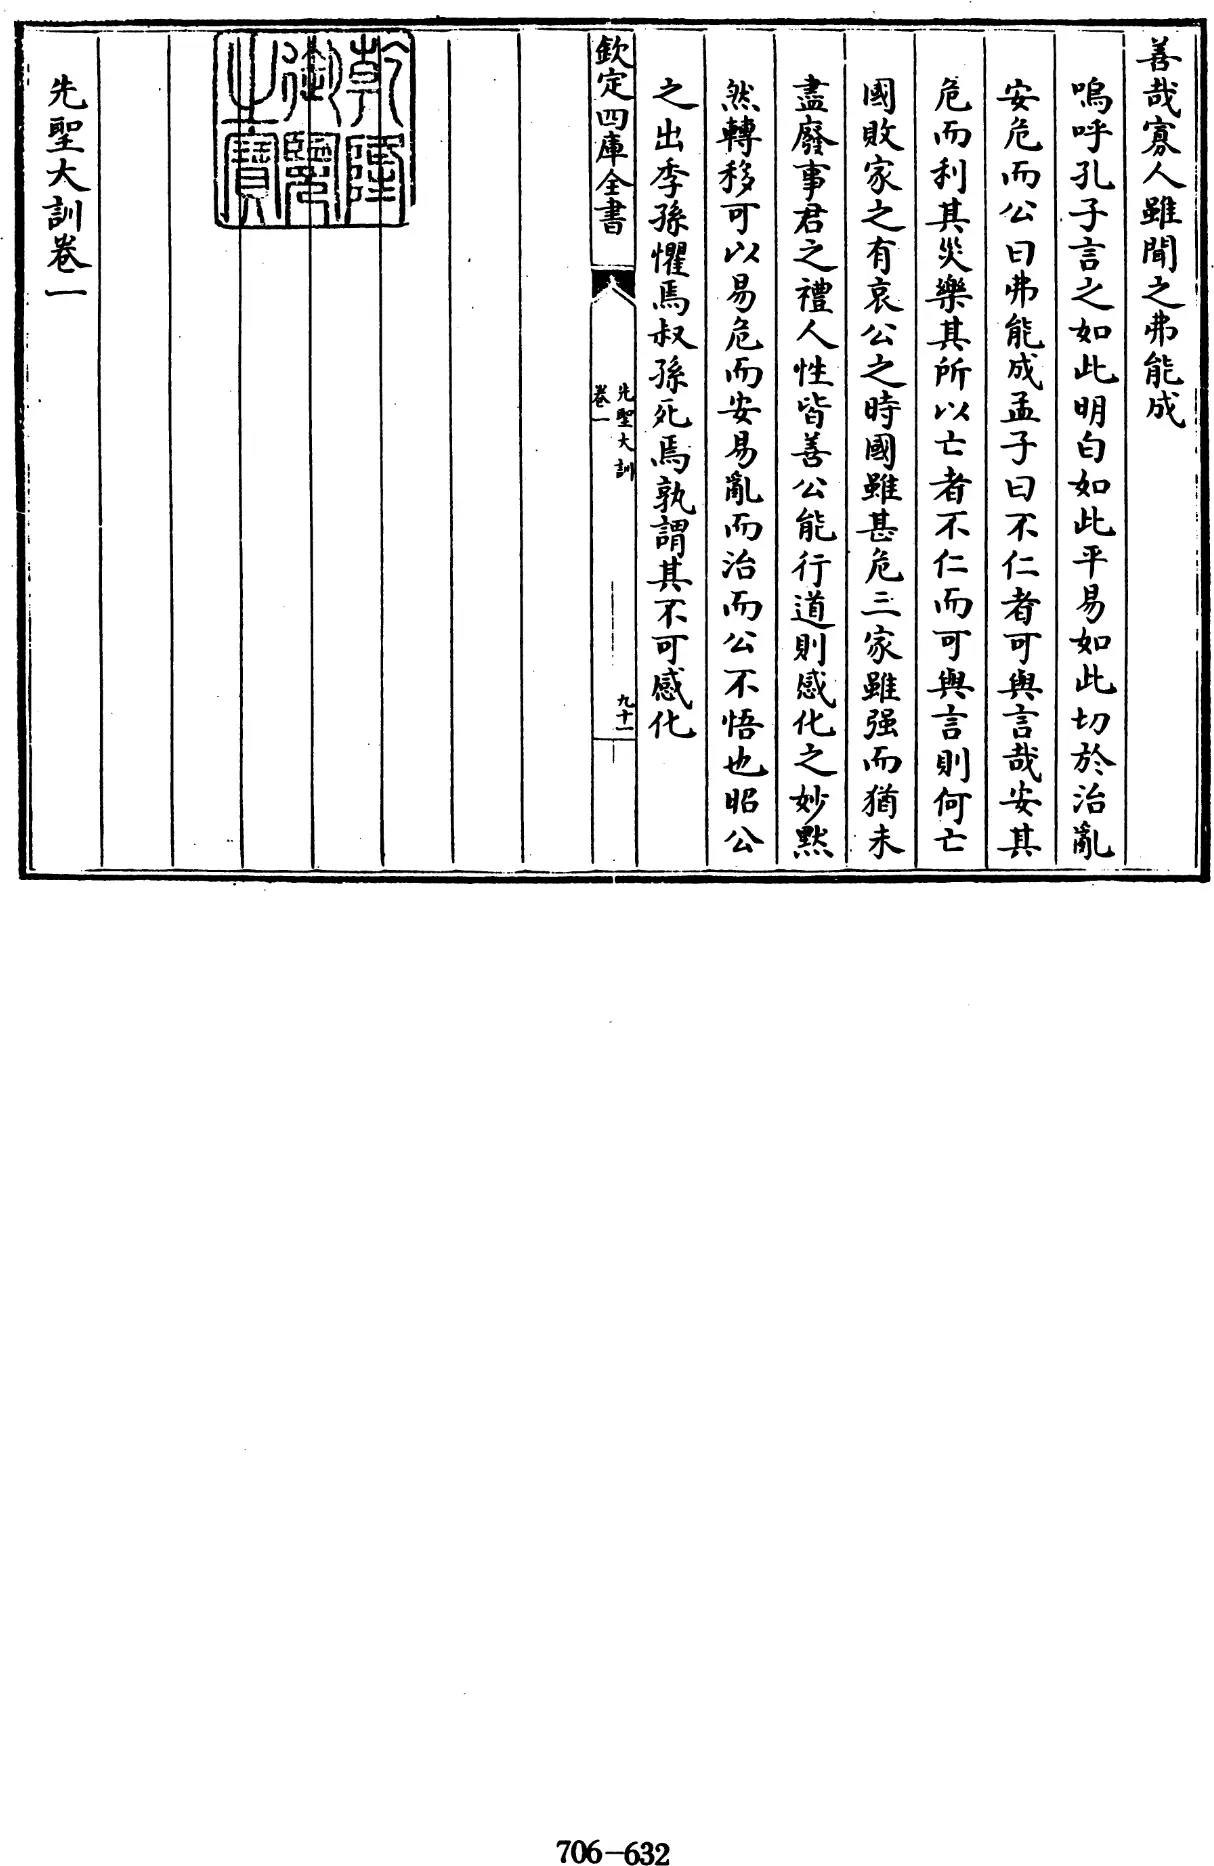 善哉寡人雖聞之弗能成
嗚呼孔子言之如此明白如此平易如此切於治亂
安危而公曰弗能成孟子曰不仁者可與言哉安其
危而利其災樂其所以亡者不仁而可與言則何亡
國敗家之有哀公之時國雖甚危三家雖强而猶未
盡廢事君之禮人性皆善公能行道則感化之妙黙
然轉移可以易危而安易亂而治而公不悟也昭公
之出季孫懼焉叔孫死焉孰謂其不可感化
欽定四庫全書
先聖大訓
卷一
九十一
乾隆御覽之寶
先聖大訓卷一
706-632